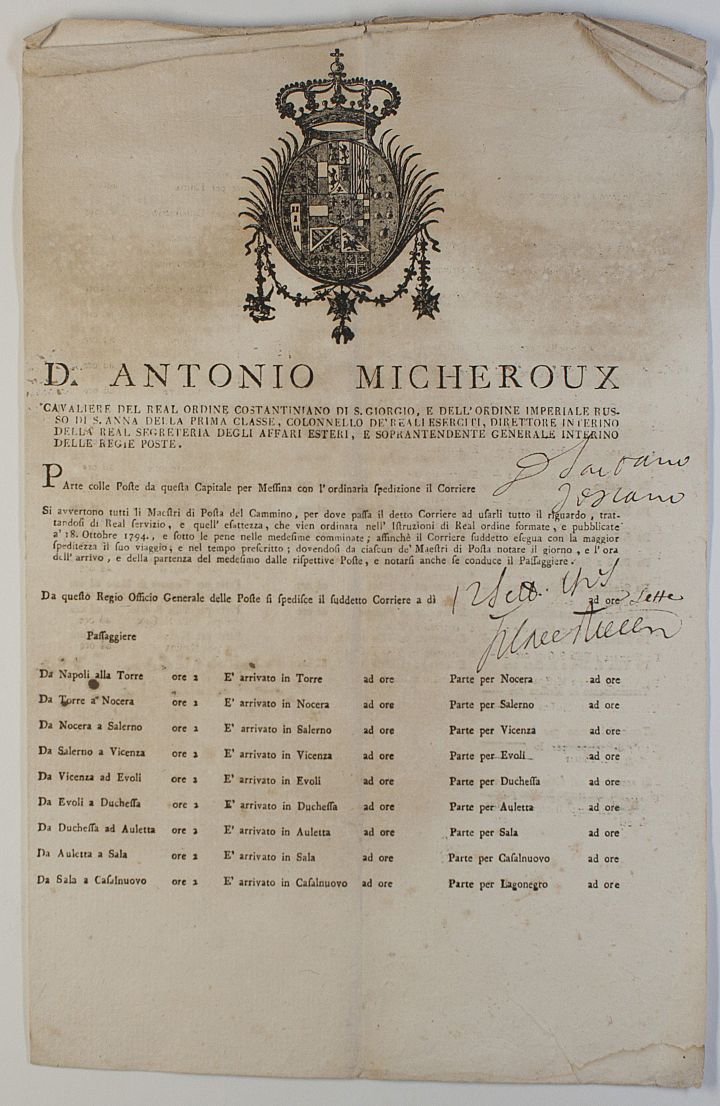 D. ANTONIO MICHEROUX
CAVALIERE DEL REAL ORDINE COSTANTINIANO DI S. GIORGIO, E DELL'ORDINE IMPERIALE RUS-
SO DI S. ANNA DELLA PRIMA CLASSE, COLONNELLO DE' REALI ESERCITI, DIRETTORE INTERINO
DELLA REAL SEGRETERIA DEGLI AFFARI ESTERI, E SOPRANTENDENTE GENERALE INTERINO
DELLE REGIE POSTE.
PArte colle Poste da questa Capitale per Messina con l'ordinaria spedizione il Corriere
Si avvertono tutti li Maeſtri di Poſta del Cammino, per dove paſſa il detto Corriere ad uſarli tutto il riguardo, trat-
tandoſi di Real ſervizio, e quell'eſattezza, che vien ordinata nell' Iſtruzioni di Real ordine formate, e pubblicate
a' 18. Ottobre 1794., e ſotto le pene nelle medeſime comminate; affinchè il Corriere ſuddetto eſegua con la maggior
ſpeditezza il ſuo viaggio; e nel tempo preſcritto; dovendoſi da ciaſcun de' Maeſtri di Poſta notare il giorno, e l'ora
dell'arrivo, e della partenza del medeſimo dalle riſpettive Poſte, e notarſi anche ſe conduce il Paſſaggiere.
Da queſto Regio Officio Generale delle Poſte ſi spediſce il ſuddetto Corriere a dì 12 Sett. ad ore Sette
Paſſaggiere
Da Napoli alla Torre ore 2 E' arrivato in Torre ad ore Parte per Nocera ad ore
Da Torre a Nocera ore 2 E' arrivato in Nocera ad ore Parte per Salerno ad ore
Da Nocera a Salerno ore 2 E' arrivato in Salerno ad ore Parte per Vicenza ad ore
Da Salerno a Vicenza ore 2 E' arrivato in Vicenza ad ore Parte per Evoli ad ore
Da Vicenza ad Evoli ore 2 E' arrivato in Evoli ad ore Parte per Ducheſſa ad ore
Da Evoli a Ducheſſa ore 2 E' arrivato in Ducheſſa ad ore Parte per Auletta ad ore
Da Ducheſſa ad Auletta ore 2 E' arrivato in Auletta ad ore Parte per Sala ad ore
Da Auletta a Sala ore 2 E' arrivato in Sala ad ore Parte per Caſalnuovo ad ore
Da Sala a Caſalnuovo ore 2 E' arrivato in Caſalnuovo ad ore Parte per Lagonegro ad ore